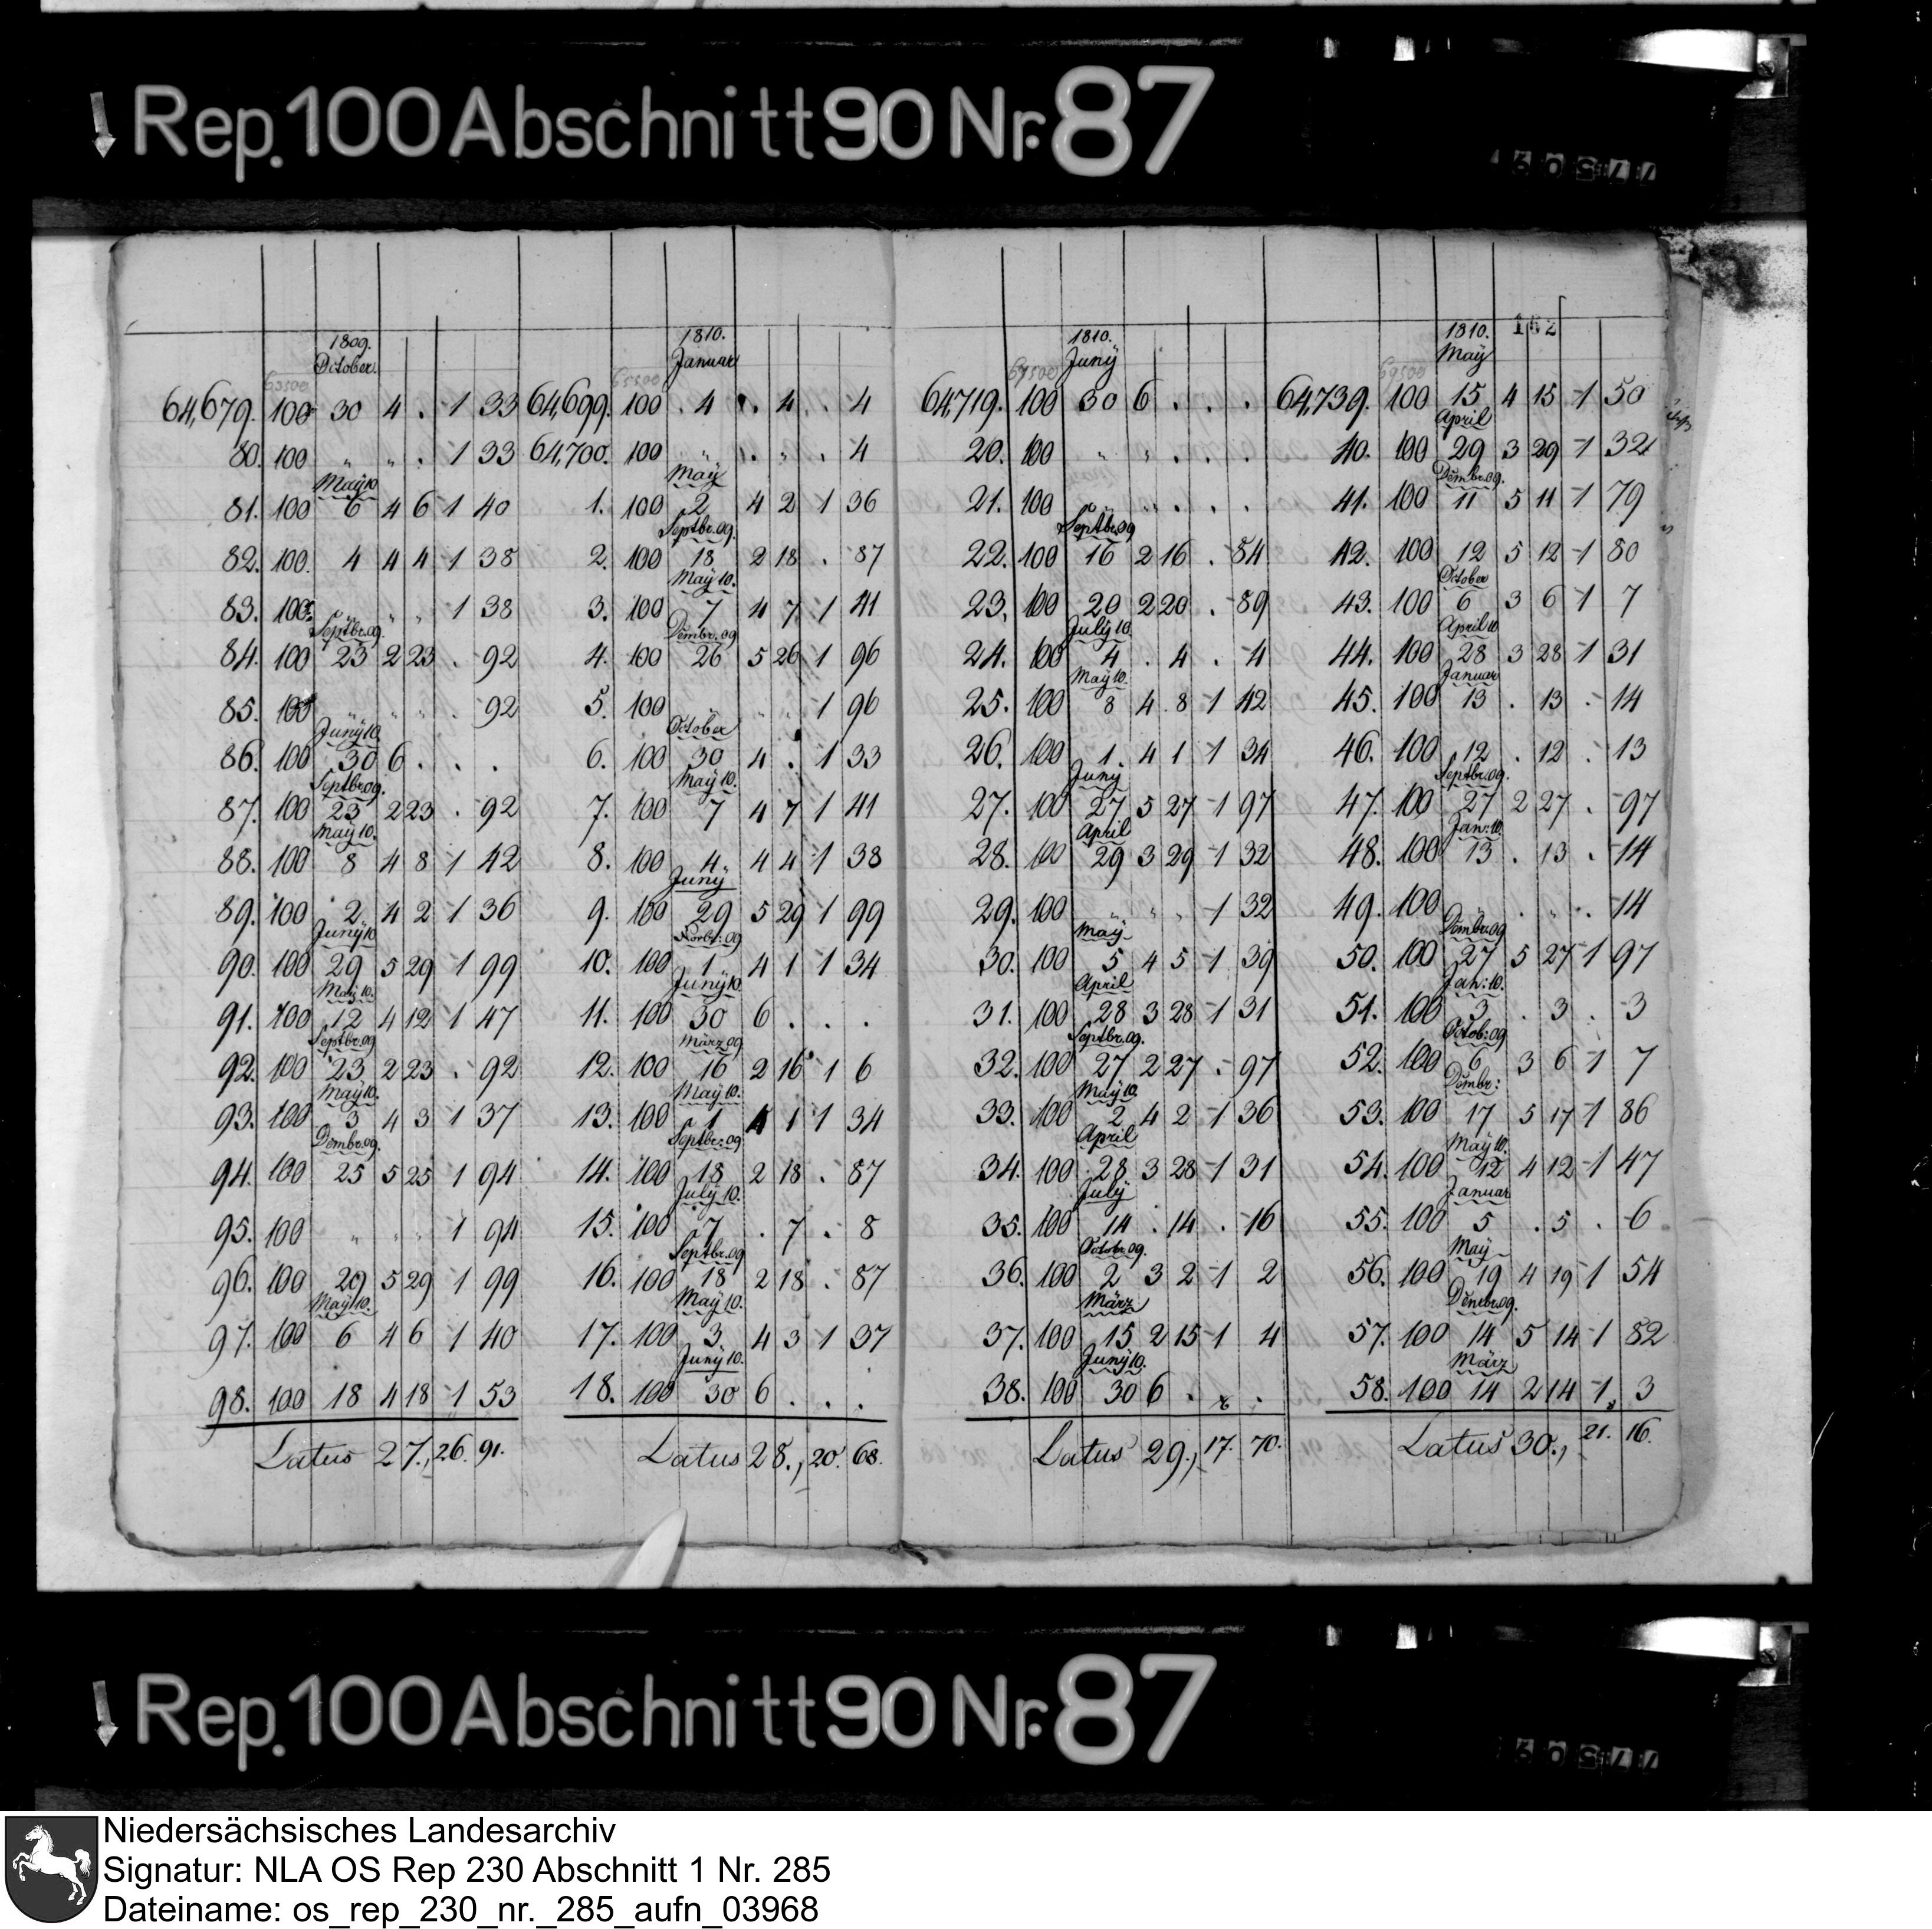 Rep. 100 Abschnitt 90 Nr. 87
1809. October.
64,679. 100 30 4 . 1 33
80. 100 " " . 1 33
May 10
81. 100 6 4 6 1 40
82. 100. 4 4 4 1 38
83. 100. " " " 1 38
Septbr. 09.
84. 100 23 2 23 . 92
85. 100 " " " . 92
Juny 10
86. 100 30 6 . . .
Septbr. 09.
87. 100 23 2 23 . 92
May 10.
88. 100 8 4 8 1 42
89. 100 2 4 2 1 36
Juny 10
90. 100 29 5 29 1 99
May 10.
91. 100 12 4 12 1 47
Septbr. 09
92. 100 23 2 23 . 92
May 10.
93. 100 3 4 3 1 37
Dembr. 09.
94. 100 25 5 25 1 94
95. 100 " " " 1 94
96. 100 29 5 29 1 99
May 10.
97. 100 6 4 6 1 40
98. 100 18 4 18 1 53
Latus 27., 26. 91.
1810. Januar
64,699. 100 . 4 . 4 . 4
64,700. 100 " . " . 4
May
1. 100 2 4 2 1 36
Septbr. 09.
2. 100 18 2 18 . 87
May 10.
3. 100 7 4 7 1 41
Dembr. 09
4. 100 26 5 26 1 96
5. 100 " " " 1 96
October
6. 100 30 4 . 1 33
May 10.
7. 100 7 4 7 1 41
8. 100 4. 4 4 1 38
Juny
9. 100 29 5 29 1 99
Novbr: 09
10. 100 1 4 1 1 34
Juny 10
11. 100 30 6 . . .
März 09
12. 100 16 2 16 1 6
May 10.
13. 100 1 4 1 1 34
Septbr: 09
14. 100 18 2 18 . 87
July 10.
15. 100 7 . 7 . 8
Septbr. 09
16. 100 18 2 18 . 87
May 10.
17. 100 3 4 3 1 37
Juny 10.
18. 100 30 6 . . .
Latus 28., 20. 68.
1810. Juny
64,719. 100 30 6 . . .
20. 100 " " . . .
21. 100 " " . . .
Septbr. 09
22. 100 16 2 16 . 84
23. 100 20 2 20 . 89
July 10.
24. 100 4 . 4 . 4
May 10.
25. 100 8 4 8 1 42
26. 100 1. 4 1 1 34
Juny
27. 100 27 5 27 1 97
April
28. 100 29 3 29 1 32
29. 100 " " " 1 32
May
30. 100 5 4 5 1 39
April
31. 100 28 3 28 1 31
Septbr. 09.
32. 100 27 2 27 . 97
May 10.
33. 100 2 4 2 1 36
April
34. 100 28 3 28 1 31
July
35. 100 14 . 14 . 16
Octobr. 09.
36. 100 2 3 2 1 2
März
37. 100 15 2 15 1 4
Juny 10.
38. 100 30 6 . . .
Latus 29., 17. 70.
152
1810. May
64,739. 100 15 4 15 1 50
April
40. 100 29 3 29 1 32
Dembr. 09.
41. 100 11 5 11 1 79
42. 100 12 5 12 1 80
October
43. 100 6 3 6 1 7
April 10
44. 100 28 3 28 1 31
Januar
45. 100 13 . 13 . 14
46. 100 12 . 12 . 13
Septbr. 09.
47. 100 27 2 27 . 97
Jan: 10.
48. 100 13 . 13 . 14
49. 100 " . " . 14
Dembr. 09
50. 100 27 5 27 1 97
Jan: 10.
51. 100 3 . 3 . 3
Octob: 09
52. 100 6 3 6 1 7
Dembr:
53. 100 17 5 17 1 86
May 10.
54. 100 12 4 12 1 47
Januar
55. 100 5 . 5 . 6
May
56. 100 19 4 19 1 54
Dembr. 09.
57. 100 14 5 14 1 82
März
58. 100 14 2 14 1 3
Latus 30., 21. 16.
Rep. 100 Abschnitt 90 Nr. 87
Niedersächsisches Landesarchiv
Signatur: NLA OS Rep 230 Abschnitt 1 Nr. 285
Dateiname: os_rep_230_nr._285_aufn_03968